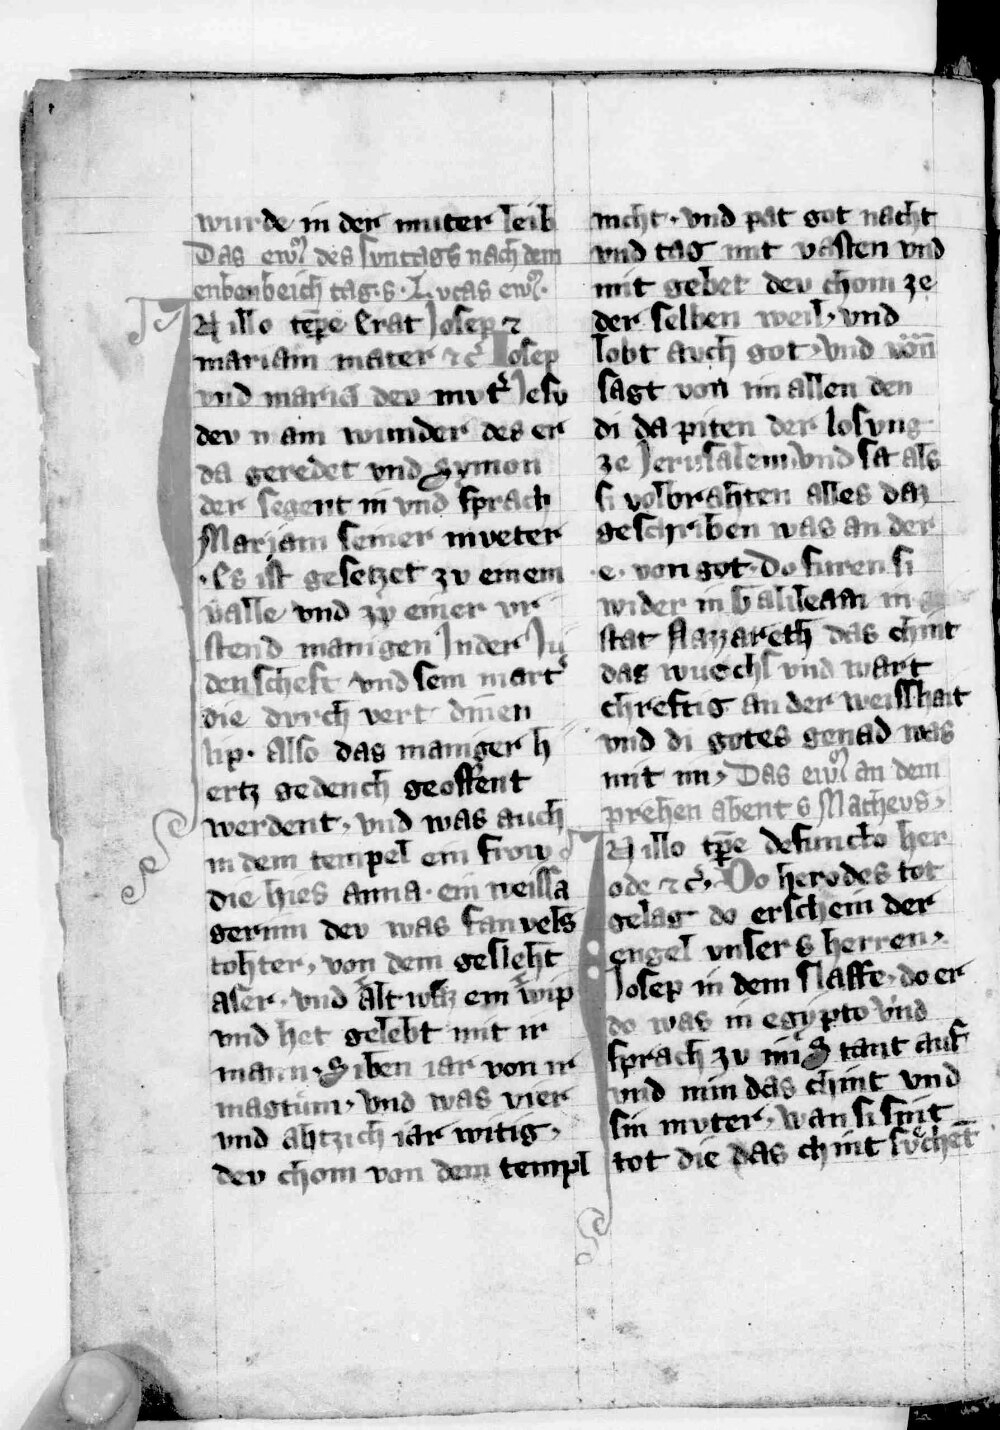 wurde in der muter leib
Das ew͛ des suntags nach dem
enbenbeich tag. s. Lucas ew͛.
IN illo tꝑe Erat Josep ⁊
mariam mater ⁊ c͛ Josep
vnd maria dev mvt͛ Jesv
dev nam wunder des er
da geredet vnd Symon
der segent in vnd sprach
Marjam seiner mveter
. Es ist gesetzet zv einem
valle vnd zv einer vr
stend manigen Jnder Ju
denscheft vnd sein mart͛
die dvrch vert dinen
lip. Also das maniger h
ertz gedench geoffent
werdent, vnd was auch
in dem tempel ein frow
die hies anna. ein weissa
gerinn dev was fanvels
tohter, von dem gesleht
aser. vnd alt waz ein wip
vnd het gelebt mit ir
mann. Siben iar von ir
magtům, vnd was vier
vnd ahtzich iar witig,
dev chom von dem templ
nicht. vnd pat got nacht
vnd tag mit vasten vnd
mit gebet dev chom ze
der selben weil, vnd
lobt avch got, vnd
sagt von im allen den
di da piten der losvng
ze Jerusalem, vnd sat als
si volbrahten alles daz
geschriben was an der
.e. von got. Do furen si
wider in Galileam in
stat Nazzareth das chint
das wuechs vnd wart
chreftig an der weisshait
vnd di gotes genad was
mit im, Das ew͛ an dem
prehen abent s Matheus,
IN illo tꝑe defuncto her
ode ⁊ c͛. Do herodes tot
gelag do erschein der
engel vnsers herren,
Josep in dem slaffe, do er
do was in egypto vnd
sprach zv im Stant auf
vnd nim das chint vnd
sin mvter, wan si sint
tot die das chint sůchet̄